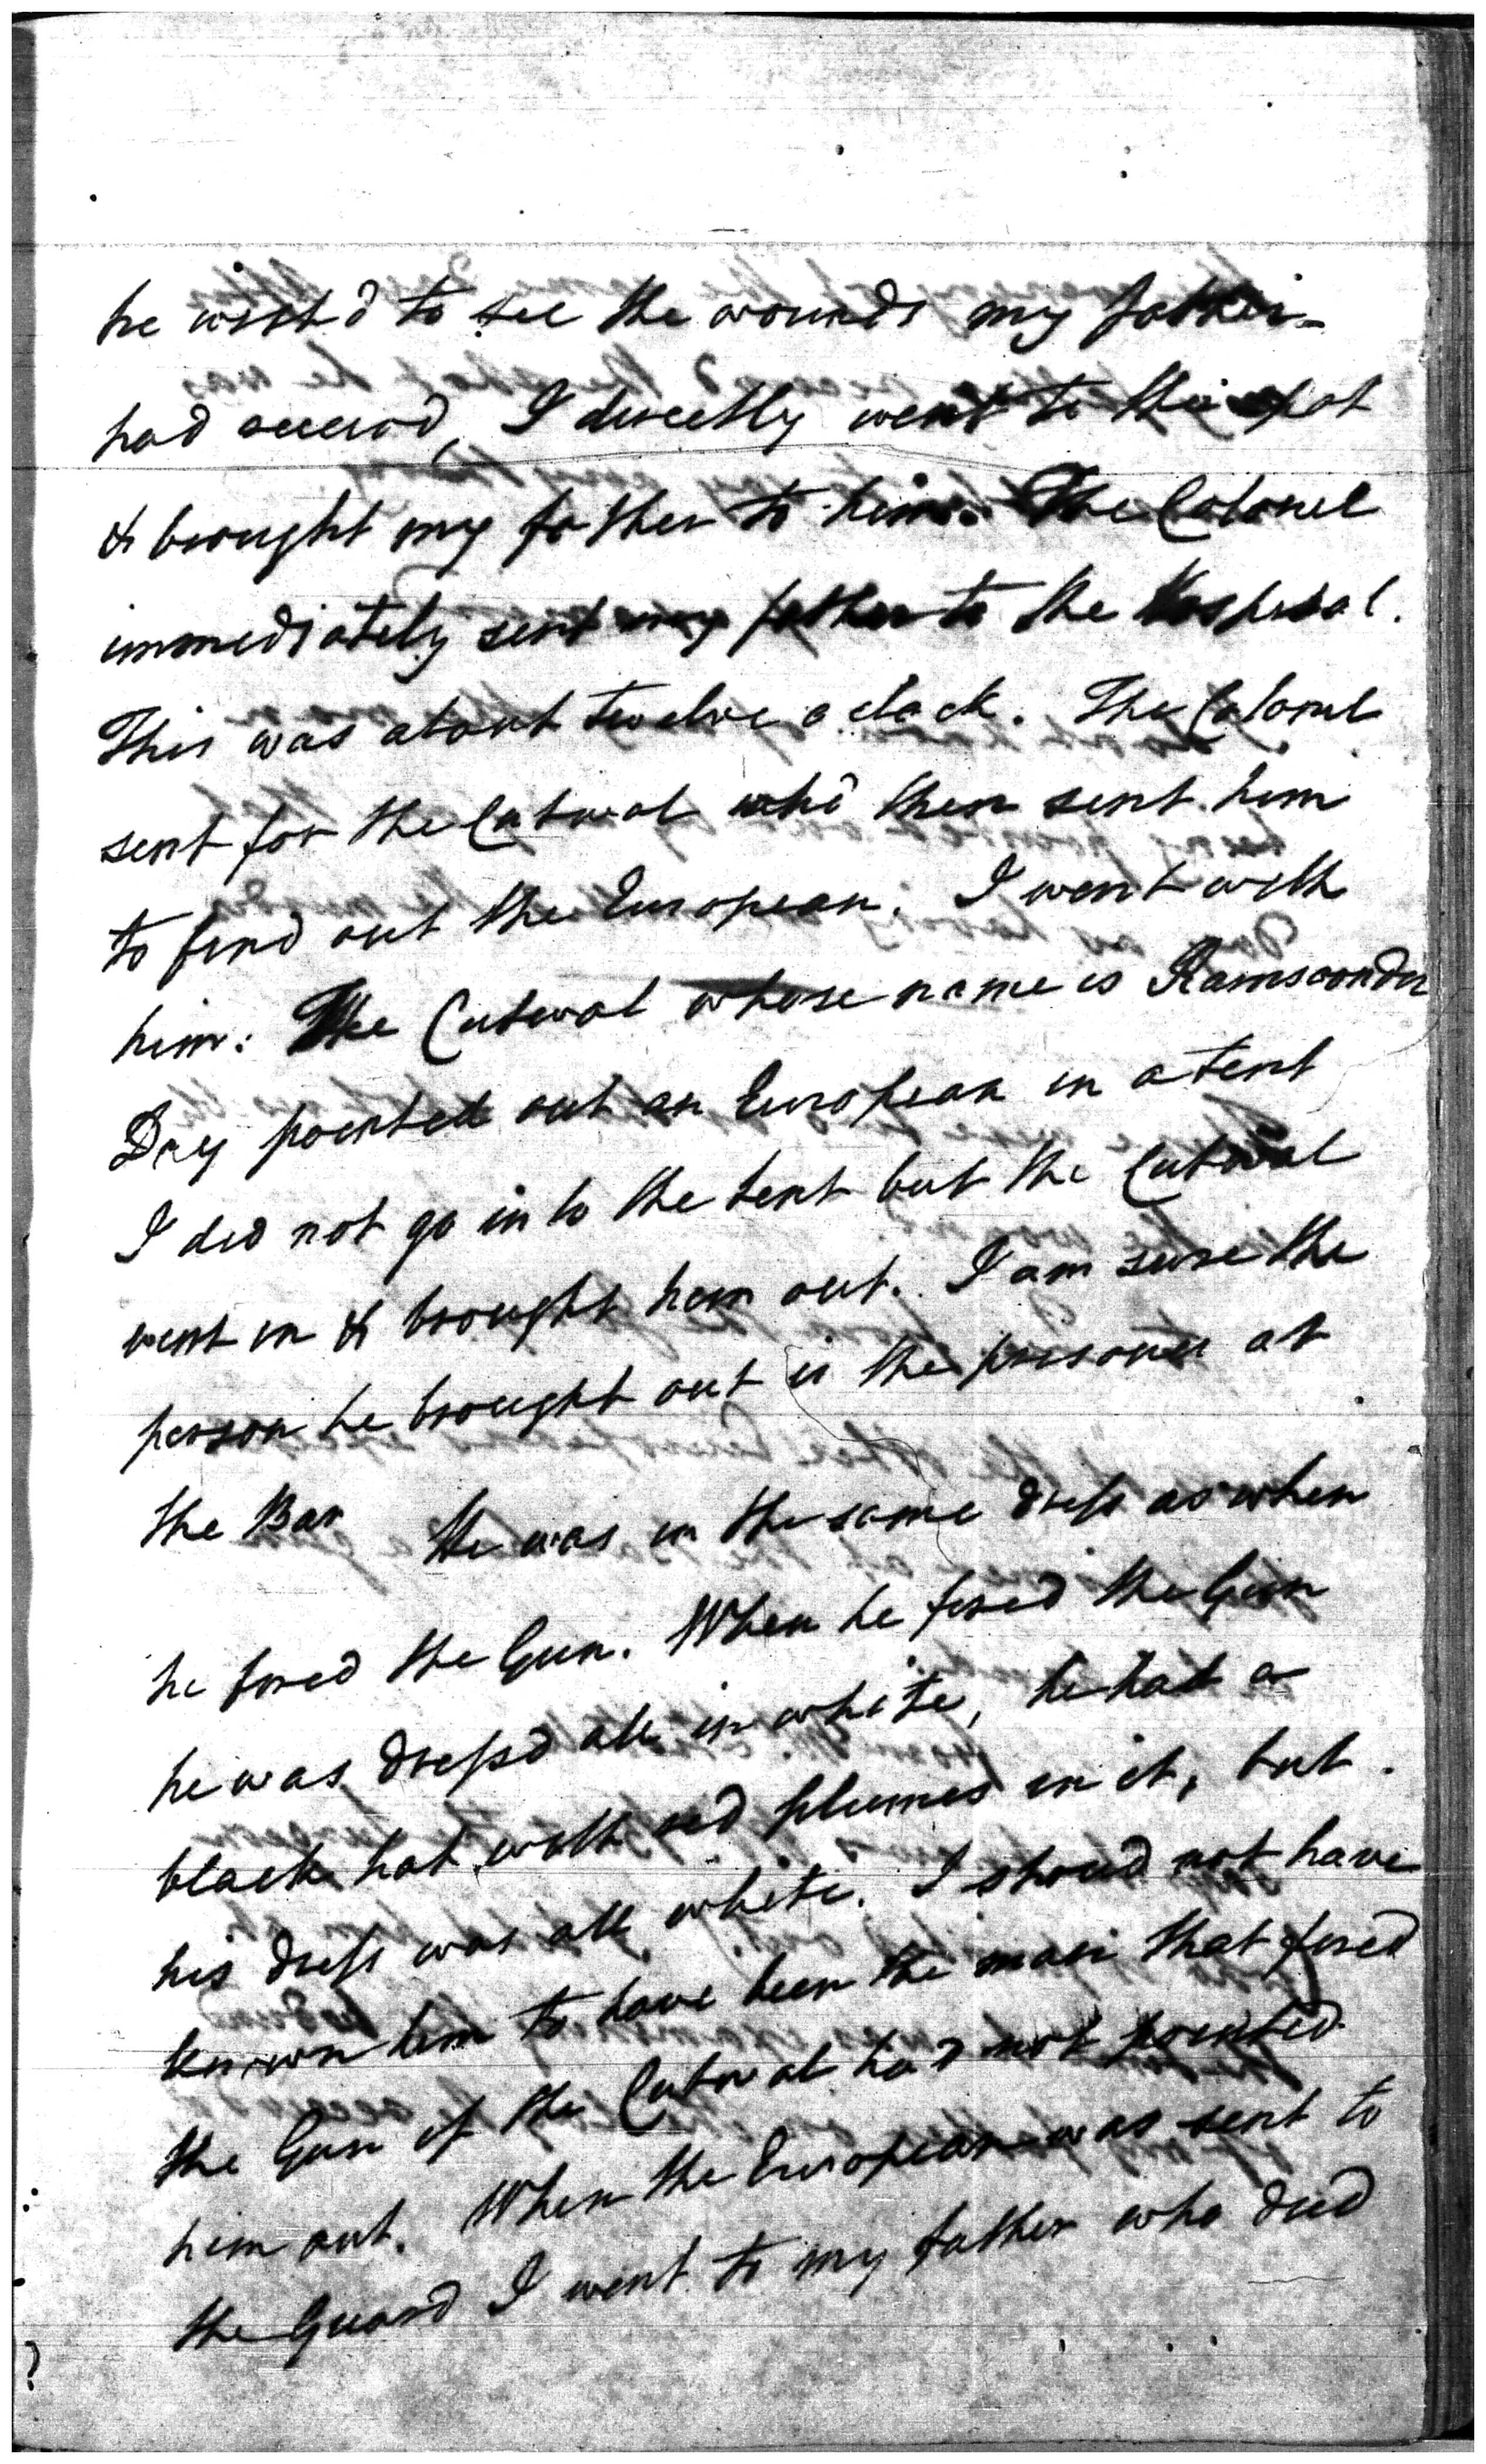 he wish'd to see the wounds my father
had receivd, I directly went to the spot
& brought my father to him. The Colonel
immediately sent my father to the Hospital.
This was about twelve o clock. The Colonel
sent for the Cutwal who then sent him
to find out the European. I went with
him: The Cutwal whose name is Ramsoonder
Dey pointed out an European in a tent
I did not go in to the tent but the Cutwal
went in & brought him out. I am sure the
person he brought out is the prisoner at
the Bar He was in the same dress as when
he fired the Gun. When he fired the Gun
he was dress'd all in white, he had a
black hat with red plumes in it, but
his dress was all white. I shoud not have
known him to have been the man that fired
the Gun if the Cutwal had not pointed
him out. When the European was sent to
the Guard I went to my father who died